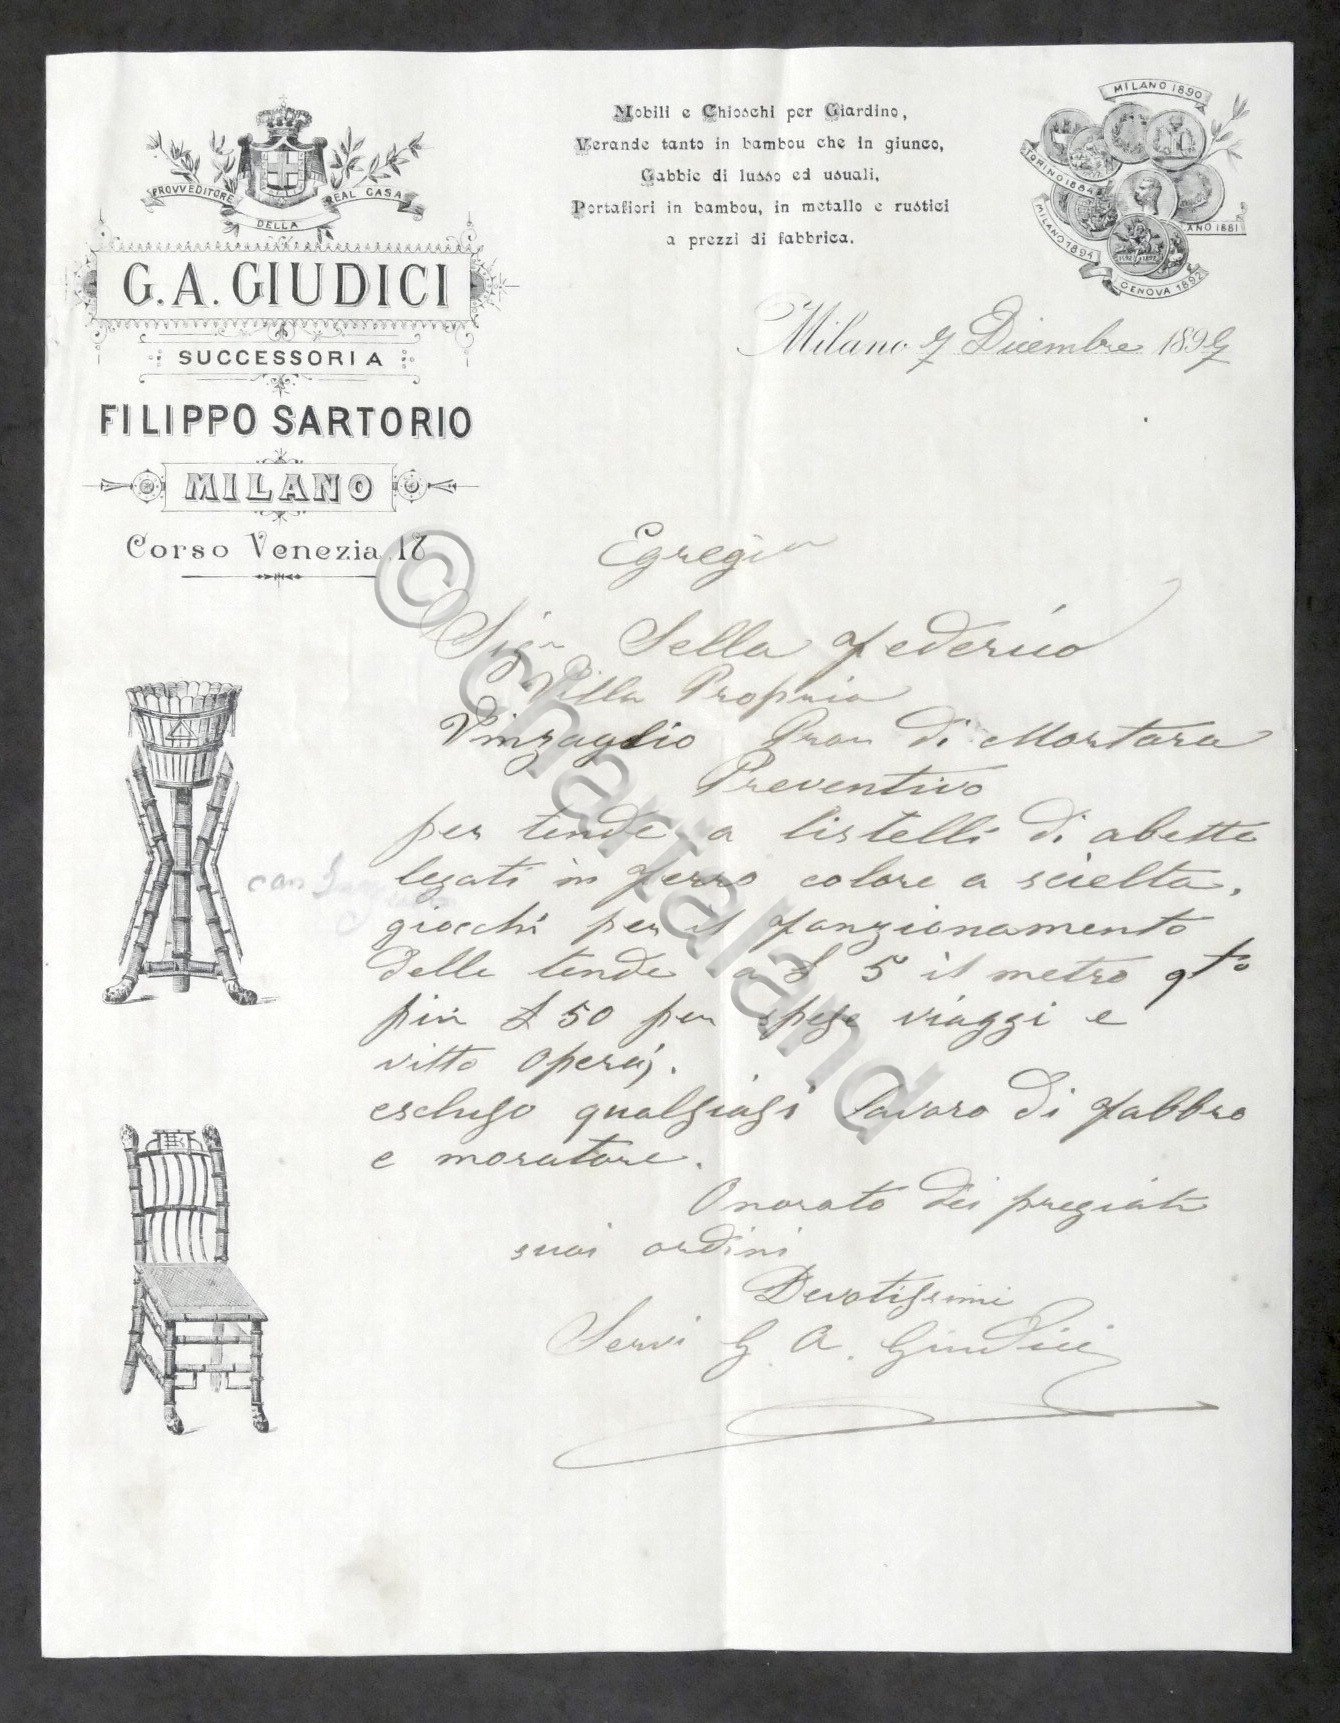 PROVVEDITORE DELLA REAL CASA
G. A. GIUDICI
SUCCESSORIA
FILIPPO SARTORIO
MILANO
Corso Venezia, 17
Mobili e Chioschi per Giardino,
Verande tanto in bambou che in giunco,
Gabbie di lusso ed usuali,
Portafiori in bambou, in metallo e rustici
a prezzi di fabbrica.
MILANO 1890
TORINO 1884
ANO 1881
MILANO 1894
GENOVA 1892
Milano 7 Dicembre 1897
Egregio
Sign Sella Federico
Villa Propria
Vinzaglio Pron di Mortara
Preventivo
per tende a listelli di abette
legati in ferro colore a scielta,
con
giocchi per il fonzionamento
delle tende a £ 5 il metro qto
piu £ 50 per spese viaggi e
vitto operaj.
escluso qualsiasi lavoro di fabbro
e moratore.
Onorato dei pregiati
suoi ordini
Devotissimi
Servi G. A. Giudici
© chartaland